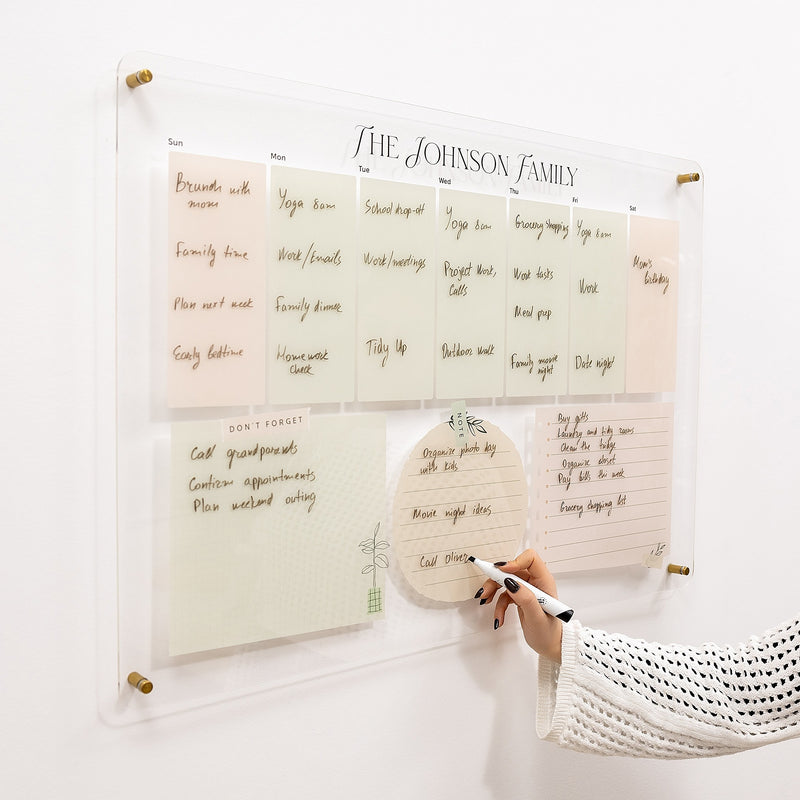 THE JOHNSON FAMILY
Sun
Brunch with
mom
Family time
Plan next week
Early bedtime
Mon
Yoga 8am
Work/Emails
Family dinner
Homework
check
Tue
School drop-off
Work/meetings
Tidy Up
Wed
Yoga 8am
Project Work,
Calls
Outdoor walk
Thu
Grocery Shopping
Work tasks
Meal prep
Family movie
night
Fri
Yoga 8am
Work
Date night
Sat
Mom's
birthday
DON'T FORGET
Call grandparents
Confirm appointments
Plan weekend outing
NOTE
Organize photo day
with kids
Movie night ideas
Call Oliver
Buy gifts
Laundry and tidy rooms
Clean the fridge
Organize closet
Pay bills this week
Grocery shopping list